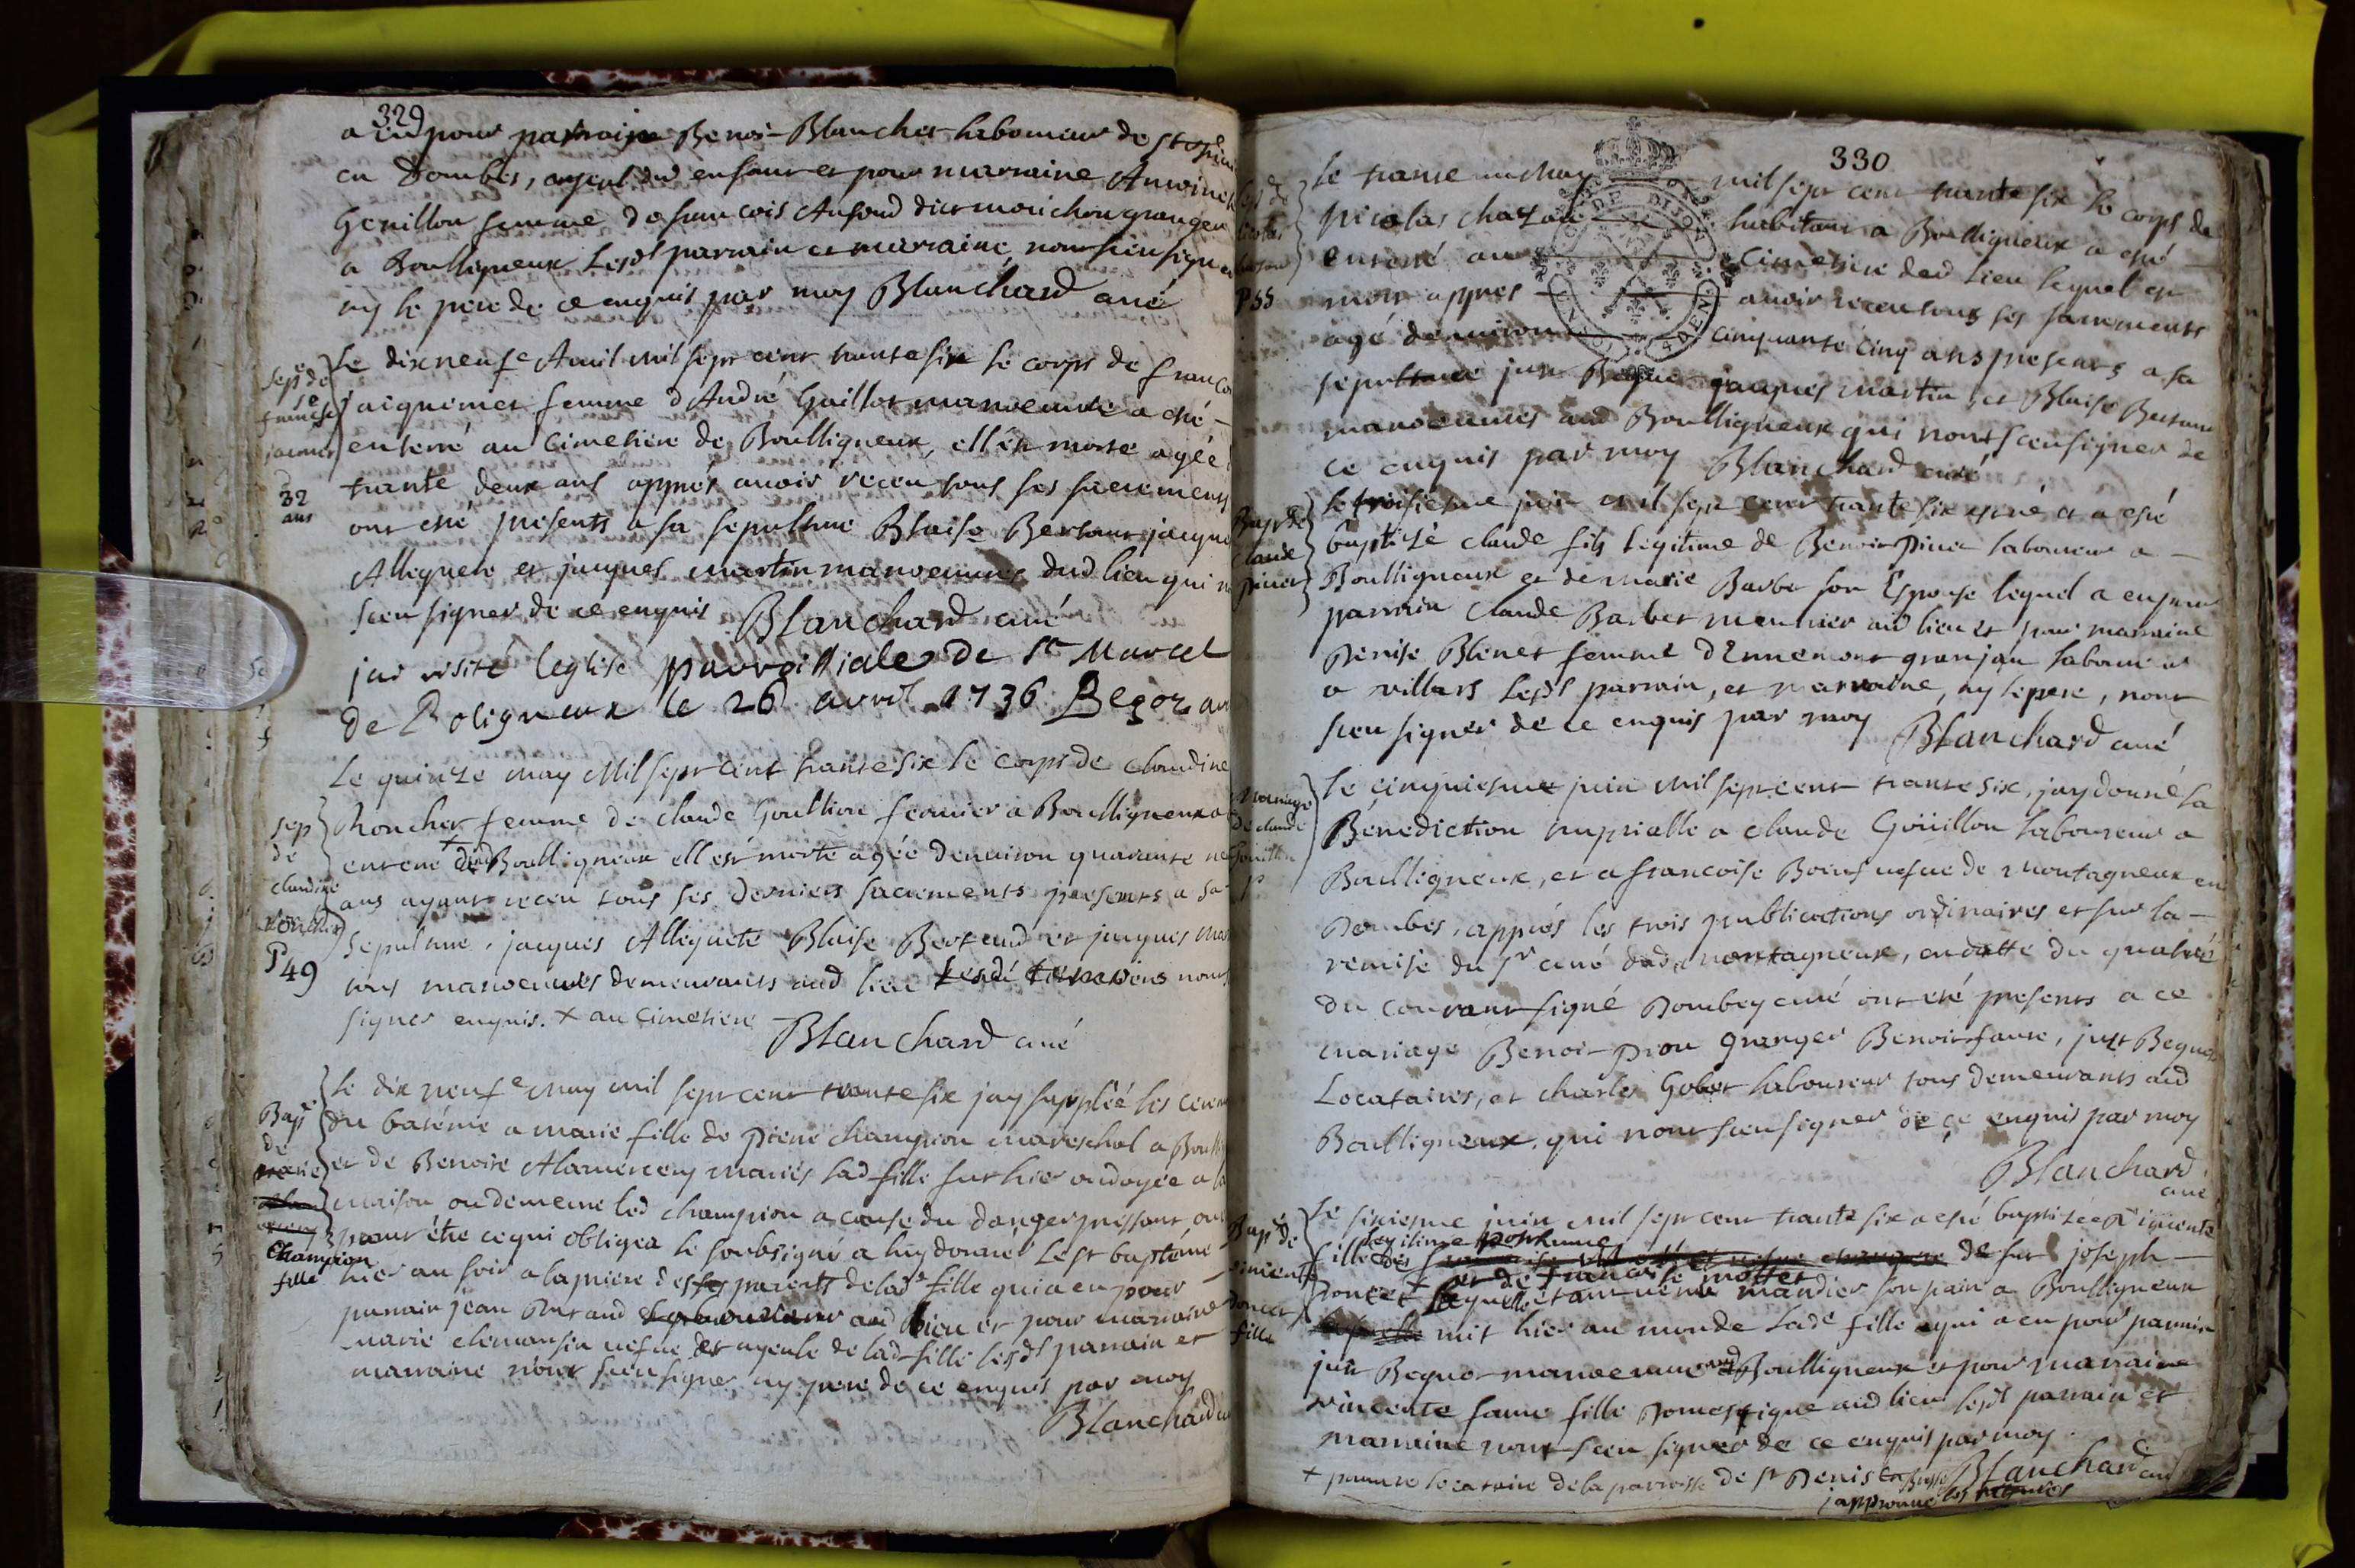 329
a eu pour parraine Benoi Blanchet laboureur de
en Dombes, ayeul dud enfant et pour marraine Antoinet
Genillon femme de francois Aufond dict morichon granger
a Boulligneux lesds parrain et marraine, nont sceu signer
ny le pere de ce enquis par moy Blanchard curé
sepe de
francse
jaimet
32
ans
Le dixneufe Avril mil sept cent trante six le corps de franco
jaiguemet femme d'André Guillot manoeuvre a esté
enterré au Cimetiere de Boulligneux, ell'est morte agée
trante deux ans appres avoir receu tous ses sacrements
ont esté presents a sa sepulture Blaise Bertaut jacque
Allegrete et jacques martin manoeuvres dud lieu qui n
sceu signer de ce enquis Blanchard curé
jai visité leglise parroissiale de St Marcel
de Boligneux le 26 avril 1736 Begoz
sep
de
claudine
P 49
Le quinze may Mil sept cent trante six le corps de claudine
femme de claude Goullion fermier a Boulligneux a
enterré + dud Boulligneux ell est morte agée denviron quarante ne
ans ayant receu tous ses derniers sacrements presents a sa
sepulture, jacques Allegrete Blaise Bertaud et jacques mar
tous manoeuvres demeurants aud lieu lesd temoins nont
signer enquis. + au Cimetiere
Blanchard curé
Bape
de
marie
Champion
fille
Le dix neufe may mil sept cent trante six jay suppléé les cerem
du batéme a marie fille de Pierre champion mareschal a Boull
et de Benoite Alamercery mariés lad fille fut hier ondoyée a la
maison ou demeure led champion a cause du danger pressant ou
pouvr être cequi obligea le soubsigné a luy donner le st baptéme
hier au soir a la priere des parents de lade fille qui a eu pour
parrain jean Durand laboureur aud lieu et pour marraine
marie clemansin vefue et ayeule de lad fille lesds parrain et
marraine n'ont sceu signer ny pere de ce enquis par moy
Blanchard cu
330
P 55
Le trante un May mil sept cent trante six le corps de
Nicolas chazal habitant a Boulligneux a esté
enterré au Cimetiere dud lieu lequel est
mort appres avoir receu tous ses sacrements
agé denviron cinquante cinq ans presents a sa
sepulture just Beguet jacques martin, et Blaise Bertaut
manoeuvres aud Boulligneux qui nont sceu signer de
ce enquis par moy Blanchard curé
Bap de
Claude
Pinet
Le troisiesme juin mil sept cent trante six est né et a esté
baptizé claude fils legitime de Benoit Pinet laboureur a
Boulligneux et de marie Barbet son Epouse lequel a eu pour
parrain Claude Barbet meunier aud lieu et pour marraine
Denise Blenet femme d'Ennemont granjan laboureur
a villars lesds parrain, et marraine, ny le pere, nont
sceu signer de ce enquis par moy Blanchard curé
Mariage
de claude
P
Le cinquiesme juin mil sept cent trante six, jay donné la
Bénediction nuptialle a claude Goüillon laboureur a
Boulligneux, et a francoise Boeuf vefue de Montagneux en
Dombes, apprés les trois publications ordinaires et sur la
remise du sr curé dud montagneux, en datte du quatrié
du courant signé Dombey curé ont eté presents a ce
mariage Benoit Piou granger Benoit faure, just Beguet
Locataires, et charles Gobet laboureur tous demeurants aud
Boulligneux, qui nont sceu signer de ce enquis par moy
Blanchard
curé
Bap de
vincente
Doncet
fille
Le sixiesme juin mil sept cent trante six a esté baptisée vincente
legitime posthume
fille de fut joseph
et de francoise mottet
Doncet + laquelle etant venu mandier son pain a Boulligneux
mit hier au monde lade fille qui a eu pour parrain
just Beguet manoeuvre aud Boulligneux et pour marraine
vincente faure fille Domestique aud lieu lesds parrain et
marraine nont sceu signer de ce enquis par moy.
+ pauvre locataire de la parroisse de St Denis en Bresse Blanchard curé
japprouve les ratures